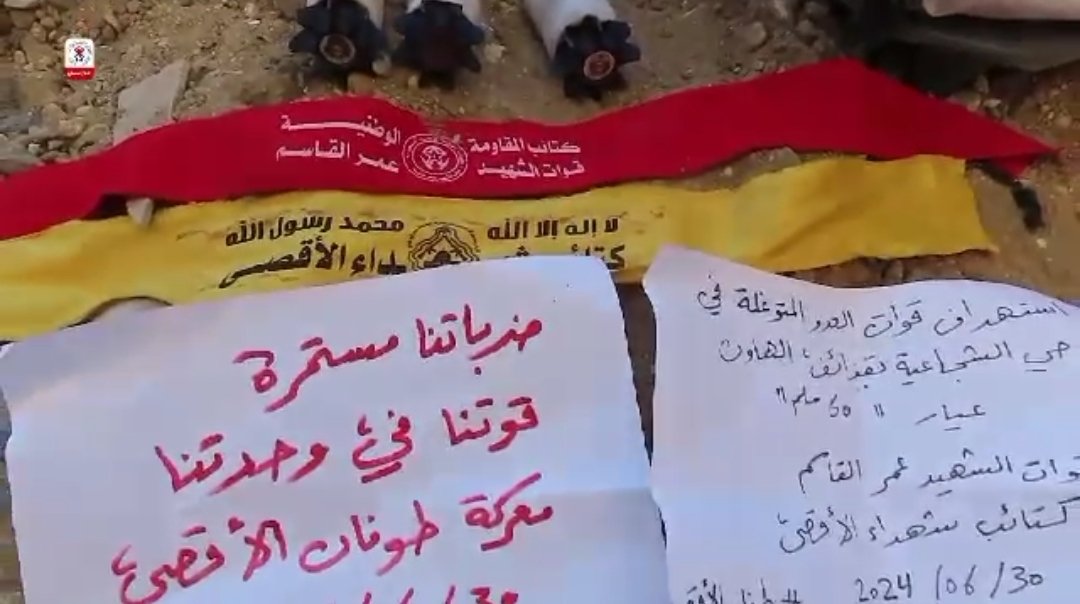 كتائب المقاومة الوطنية
قوات الشهيد عمر القاسم
لا إله إلا الله محمد رسول الله
كتائب شهداء الأقصى
ضرباتنا مستمرة
قوتنا في وحدتنا
معركة طوفان الأقصى
استهداف قوات العدو المتوغلة في
حي الشجاعية بقذائف الهاون
عيار "60 ملم"
قوات الشهيد عمر القاسم
كتائب شهداء الأقصى
2024 /06 /30